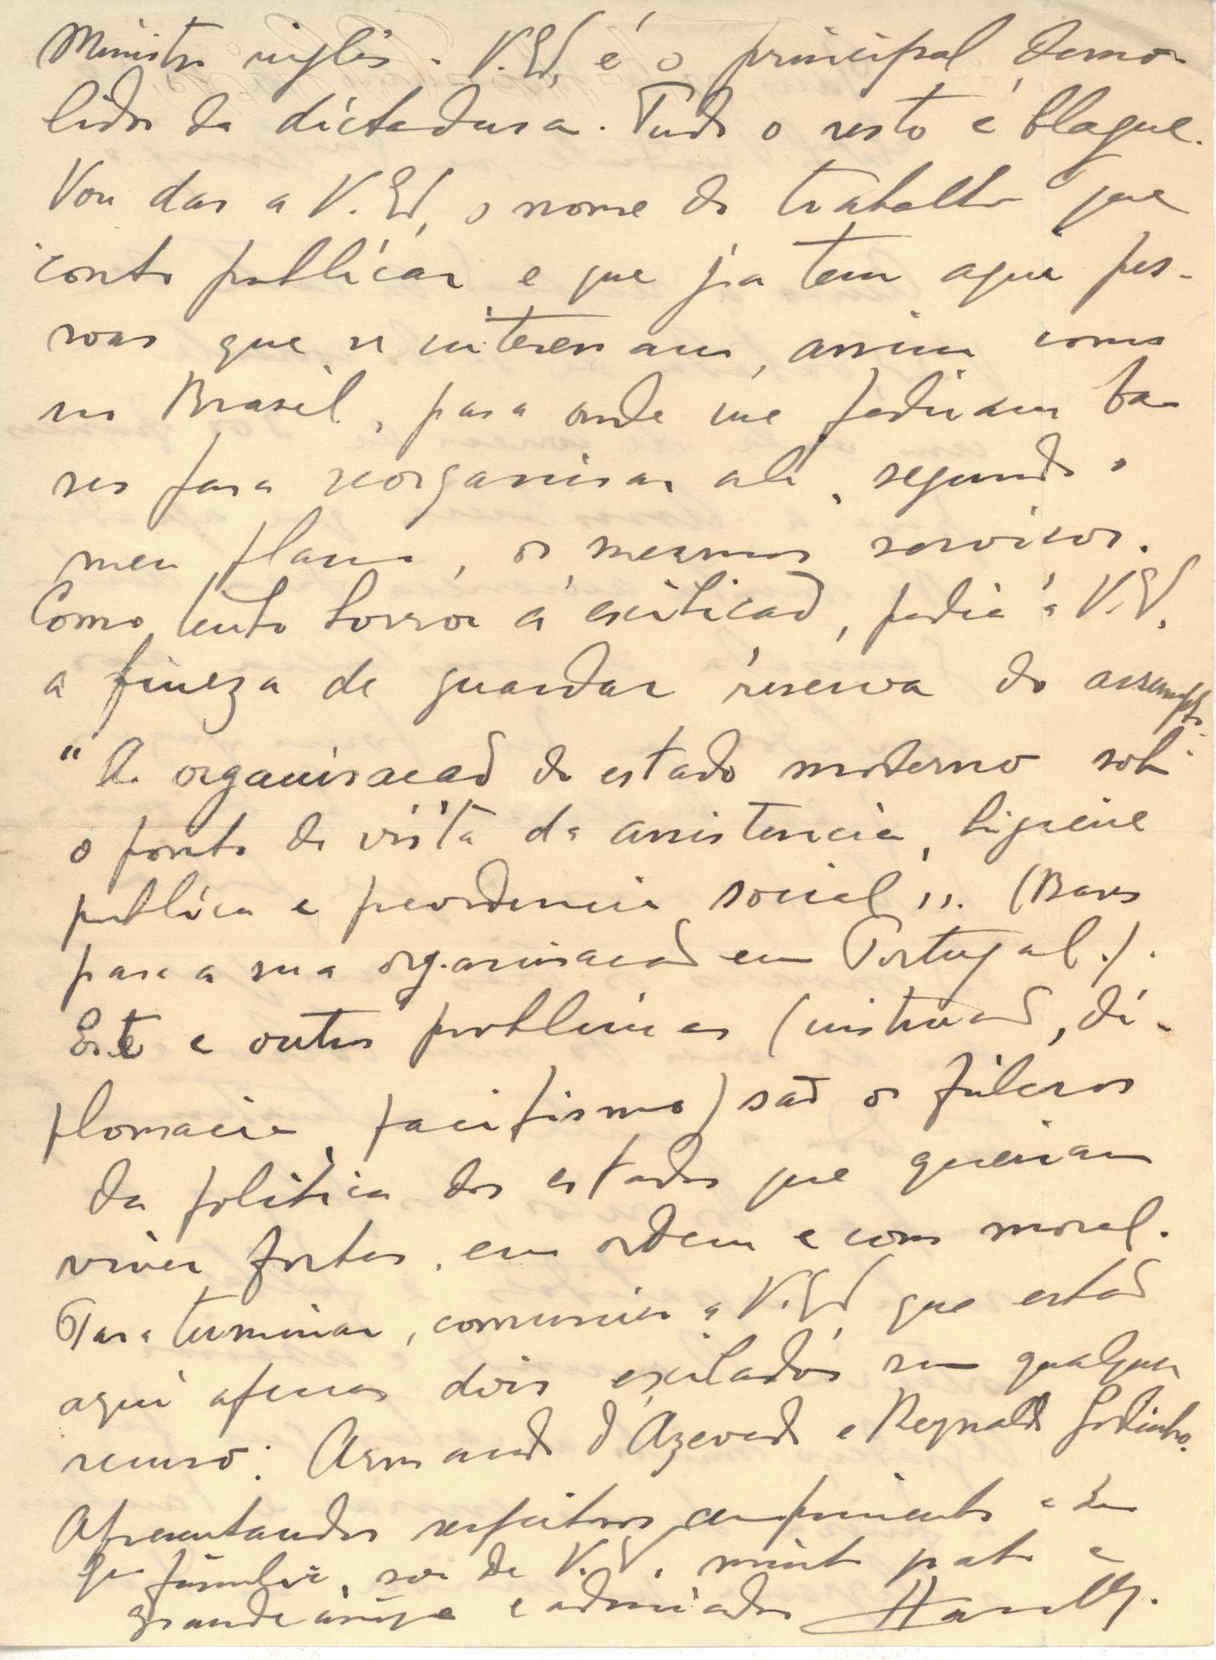 Ministro inglês. V. Ex. é o principal demo-
lidor da dictadura. Tudo o resto é blague.
Vou dar a V. Ex. o nome do trabalho que
conto publicar e que já tem aqui pes-
soas que se interessam, assim como
no Brasil, para onde me pediram ba-
ses para reorganisar ali, segundo o
meu plano, os mesmos serviços.
Como tenho horror á exibição, pedia a V. Ex.
a fineza de guardar reserva do assumpto.
"A organisação do estado moderno sob
o ponto de vista da assistencia, higiene
publica e previdencia social". (Bases
para a sua organisação em Portugal.).
Este e outros problemas (instrução, di-
plomacia, pacifismo) são os fulcros
da politica dos estados que queiram
viver fortes, em ordem e com moral.
Para terminar, comunico a V. Ex. que estão
aqui apenas dois exilados sem qualquer
recurso: Armando d'Azevedo e Reynaldo Godinho.
Apresentando respeitosos cumprimentos a
familia, sou de V. Ex. muito grato e
grande amigo e admirador